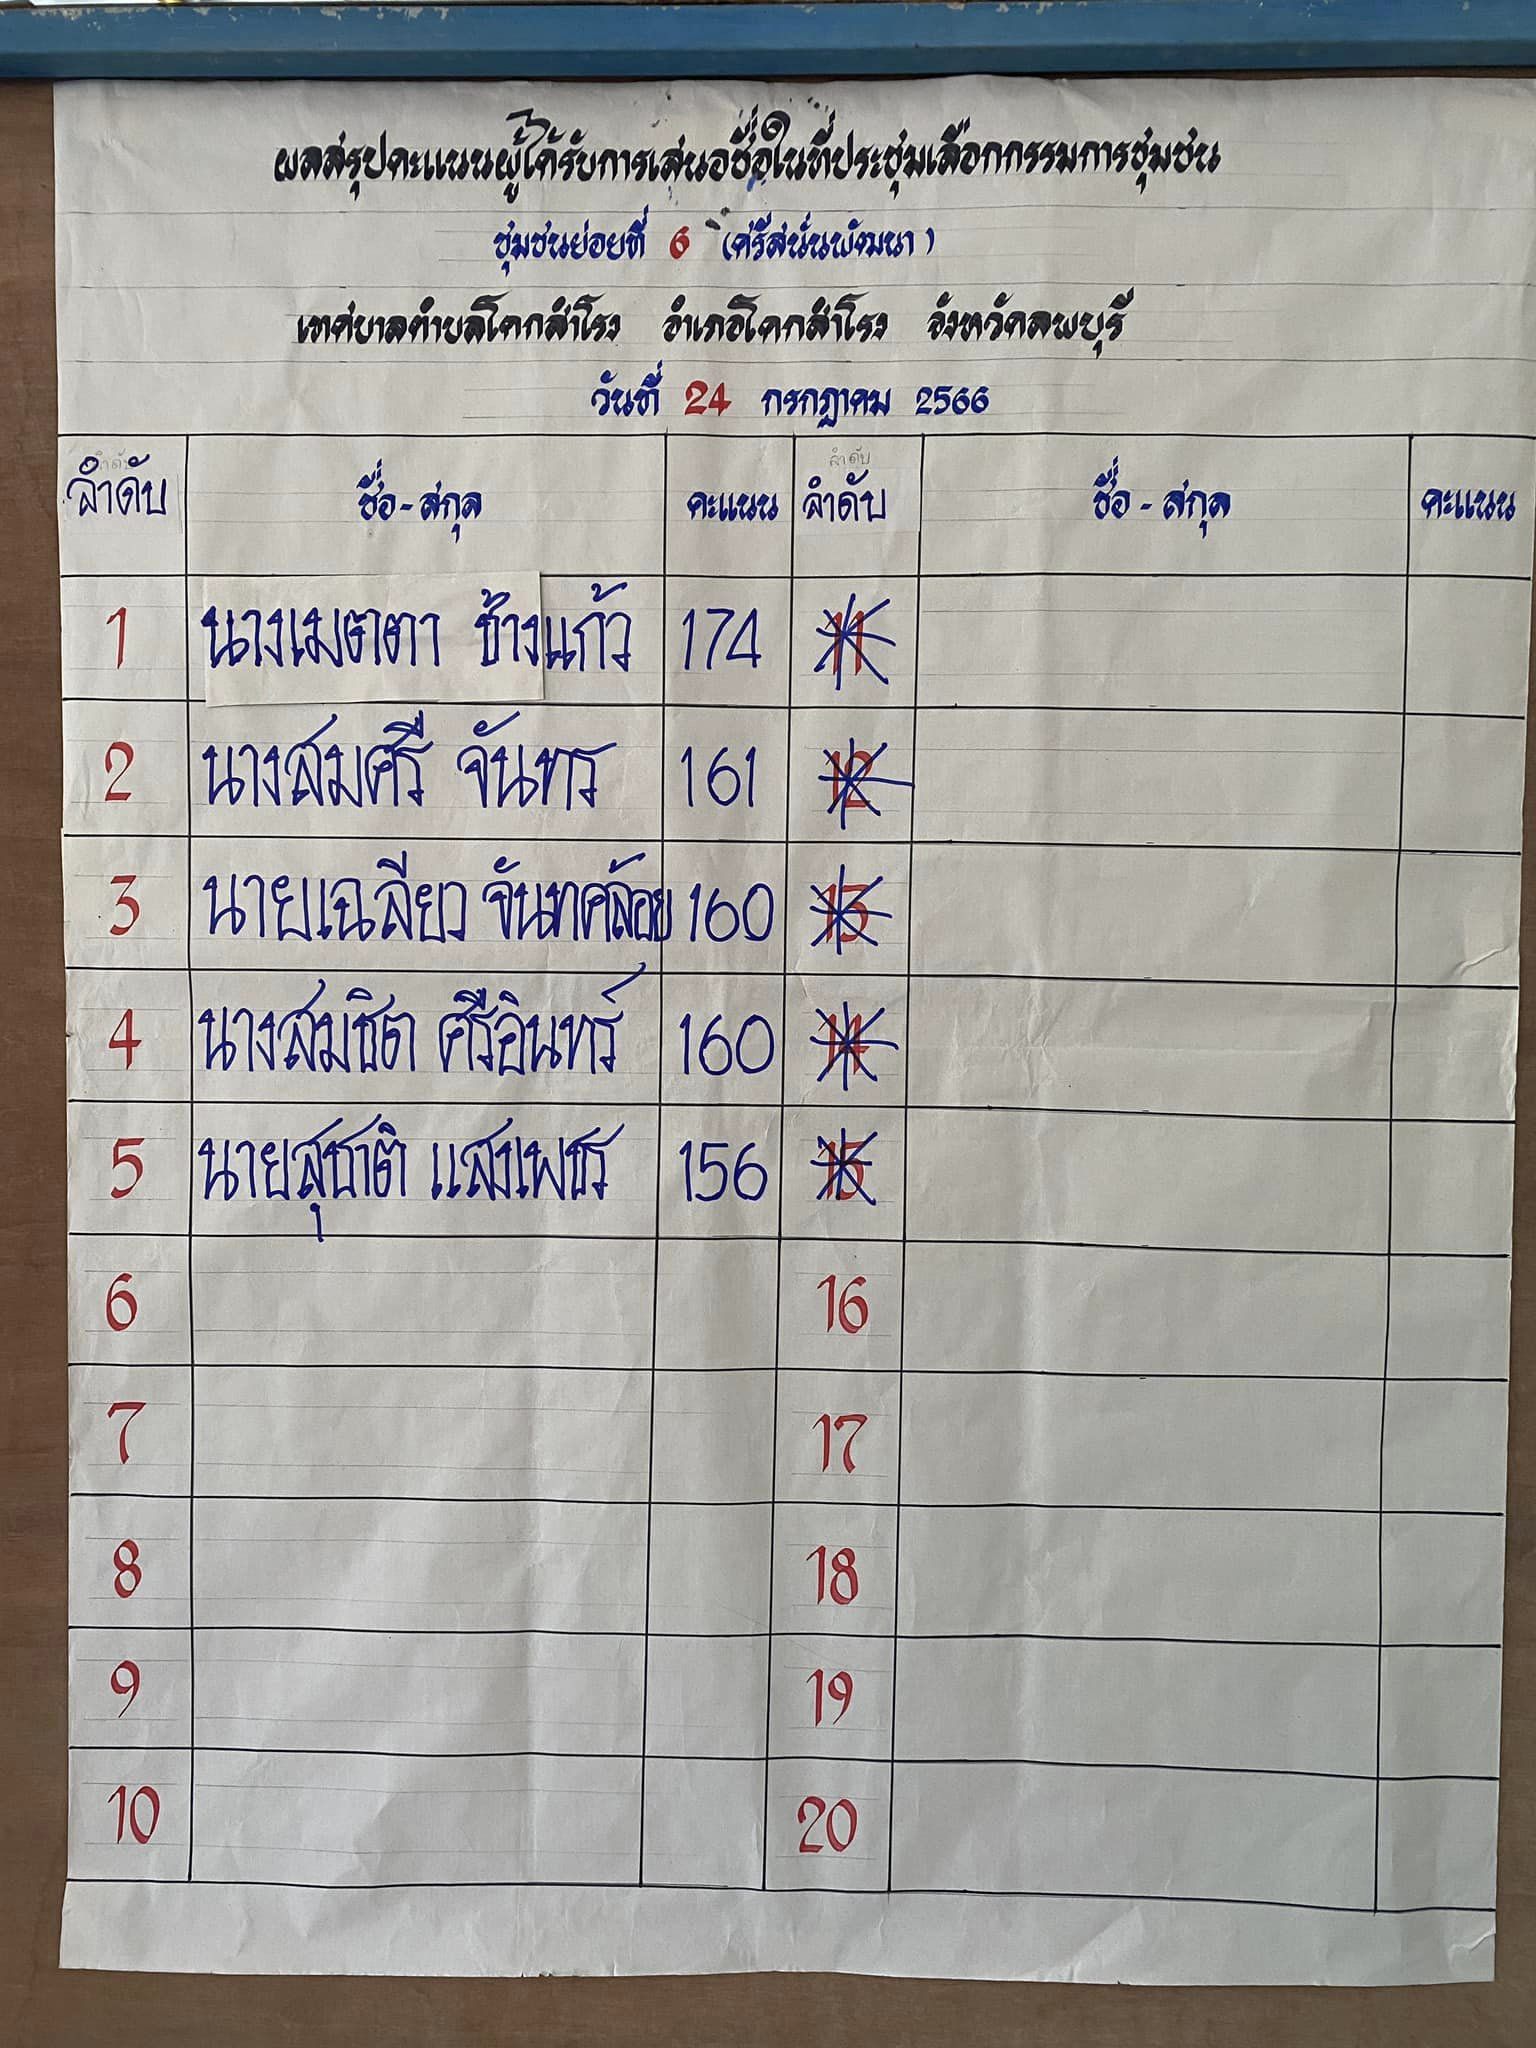 ผลสรุปคะแนนผู้ได้รับการเสนอชื่อในที่ประชุมเลือกกรรมการชุมชน
ชุมชนย่อยที่ 6 (ศรีสนั่นพัฒนา)
เทศบาลตำบลโคกสำโรง อำเภอโคกสำโรง จังหวัดลพบุรี
วันที่ 24 กรกฎาคม 2566
ลำดับ ลำดับ
ลำดับ ชื่อ-สกุล คะแนน ลำดับ ชื่อ - สกุล คะแนน
1 นางเมตตา ช้างแก้ว 174 11
2 นางสมศรี จันทร 161 12
3 นายเฉลียว จันทคล้อย 160 13
4 นางสมชิต ศรีอินทร์ 160 14
5 นายสุชาติ แสงเพชร 156 15
6 16
7 17
8 18
9 19
10 20